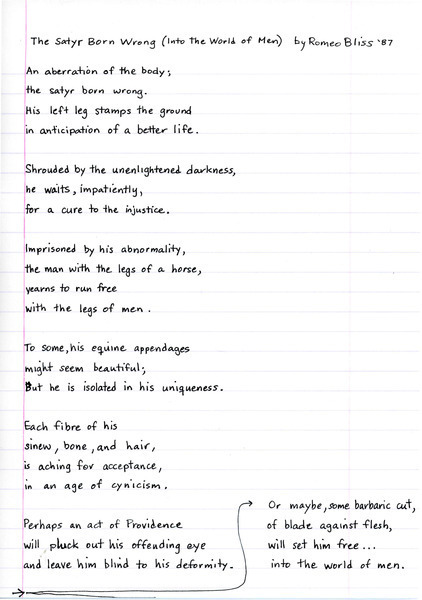 The Satyr Born Wrong (Into The World of Men) by Romeo Bliss '87
An aberration of the body;
the satyr born wrong.
His left leg stamps the ground
in anticipation of a better life.
Shrouded by the unenlightened darkness,
he waits, impatiently,
for a cure to the injustice.
Imprisoned by his abnormality,
the man with the legs of a horse,
yearns to run free
with the legs of men.
To some, his equine appendages
might seem beautiful;
But he is isolated in his uniqueness.
Each fibre of his
sinew, bone, and hair,
is aching for acceptance,
in an age of cynicism.
Perhaps an act of Providence
will pluck out his offending eye
and leave him blind to his deformity.
Or maybe, some barbaric cut,
of blade against flesh,
will set him free...
into the world of men.